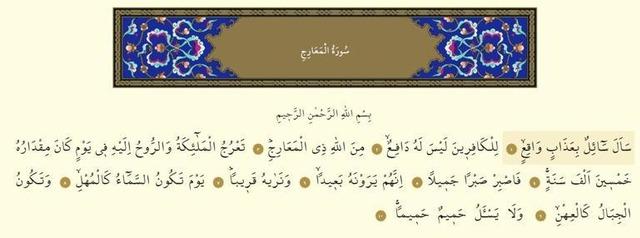 سُورَةُ الْمَعَارِجِ
بِسْمِ اللهِ الرَّحْمٰنِ الرَّحِيمِ
سَاَلَ سَٓائِلٌ بِعَذَابٍ وَاقِعٍۙ ١ لِلْكَافِرِينَ لَيْسَ لَهُ دَافِعٌۙ ٢ مِنَ اللهِ ذِي الْمَعَارِجِۜ ٣ تَعْرُجُ الْمَلٰٓئِكَةُ وَالرُّوحُ اِلَيْهِ فِي يَوْمٍ كَانَ مِقْدَارُهُ
خَمْسِينَ اَلْفَ سَنَةٍۚ ٤ فَاصْبِرْ صَبْرًا جَمِيلًا ٥ اِنَّهُمْ يَرَوْنَهُ بَعِيدًاۙ ٦ وَنَرٰيهُ قَرِيبًاۜ ٧ يَوْمَ تَكُونُ السَّمَٓاءُ كَالْمُهْلِۙ ٨ وَتَكُونُ
الْجِبَالُ كَالْعِهْنِۙ ٩ وَلَا يَسْـَٔلُ حَمِيمٌ حَمِيمًاۚ ١٠